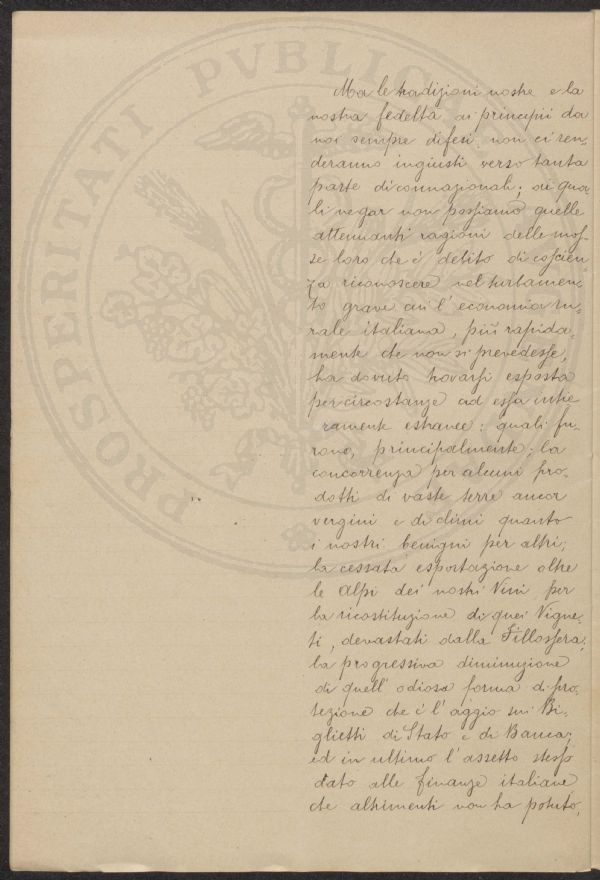 PROSPERITATI PVBLICAE
Ma le tradizioni nostre e la
nostra fedeltà ai principii da
noi sempre difesi, non ci ren-
deranno ingiusti verso tanta
parte di connazionali; ai qua-
li negar non possiamo quelle
attenuanti ragioni delle mos-
se loro che è debito di coscien-
za riconoscere nel turbamen-
to grave cui l'economia ru-
rale italiana, più rapida-
mente che non si prevedesse,
ha dovuto trovarsi esposta
per circostanze ad essa intie
ramente estranee: quali fu-
rono, principalmente; la
concorrenza per alcuni pro-
dotti di vaste terre ancor
vergini e di climi quanto
i nostri benigni per altri;
la cessata esportazione oltre
le Alpi dei nostri Vini per
la ricostituzione di quei Vigne-
ti, devastati dalla Fillossera;
la progressiva diminuzione
di quell'odiosa forma di pro-
tezione che è l'aggio sui Bi-
glietti di Stato e di Banca;
ed in ultimo l'assetto stesso
dato alle finanze italiane
che altrimenti non ha potuto,